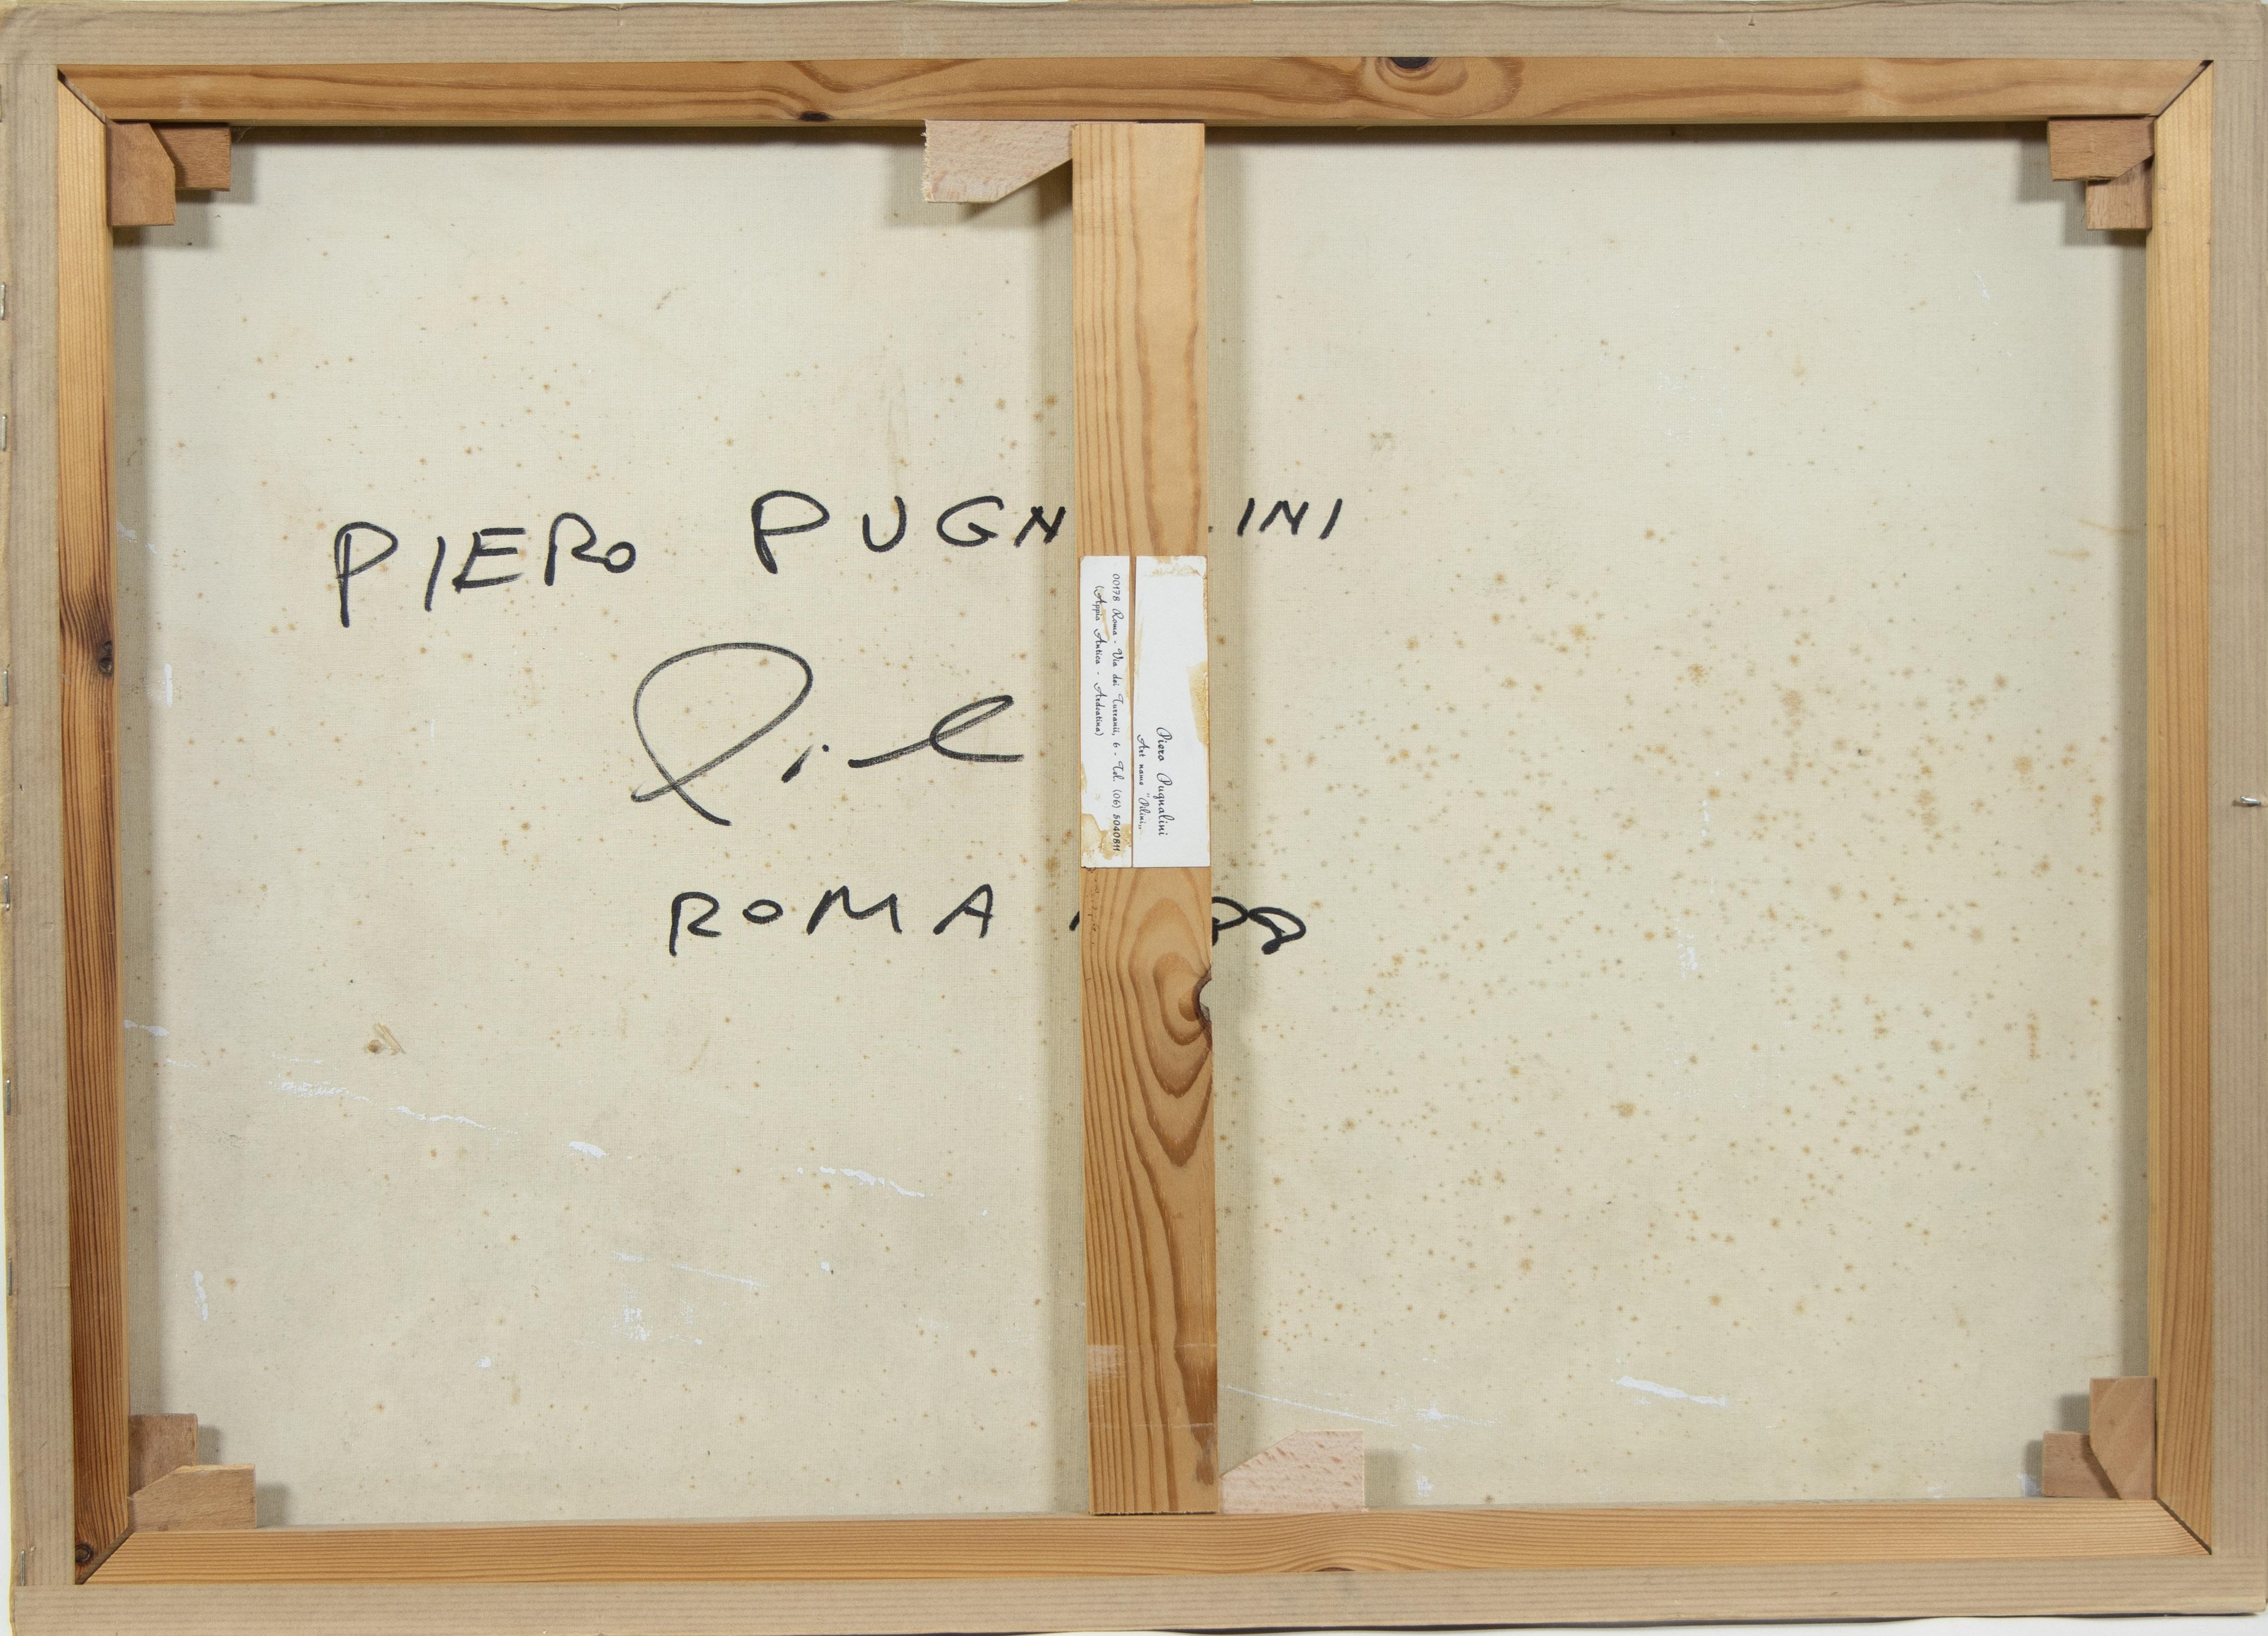 PIERO PUGN INI
Pil
ROMA
Piero Pugnalini
Art name "Pilini„
00178 Roma - Via dei Turranii, 6 - Tel. (06) 5040811
(Appia Antica - Ardeatina)